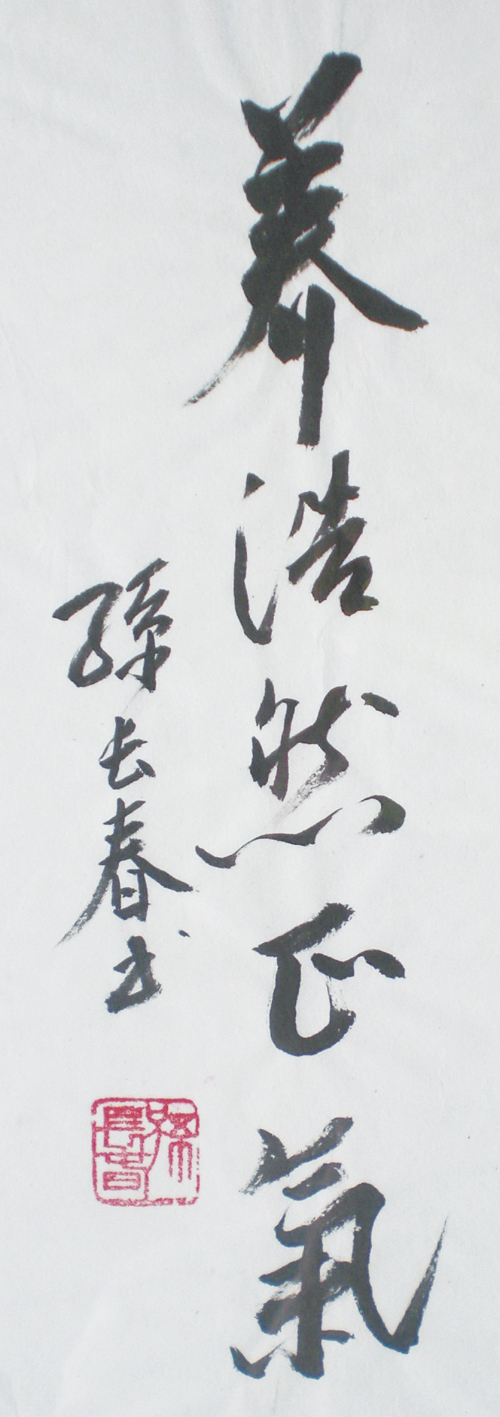 养浩然正氣
孫长春书
孫長春